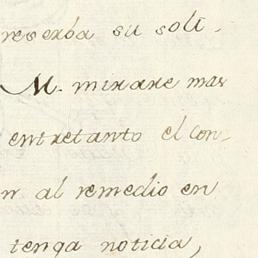 reserva su soli-
M. mirare mas
entretanto el con-
n al remedio en
tenga noticia,